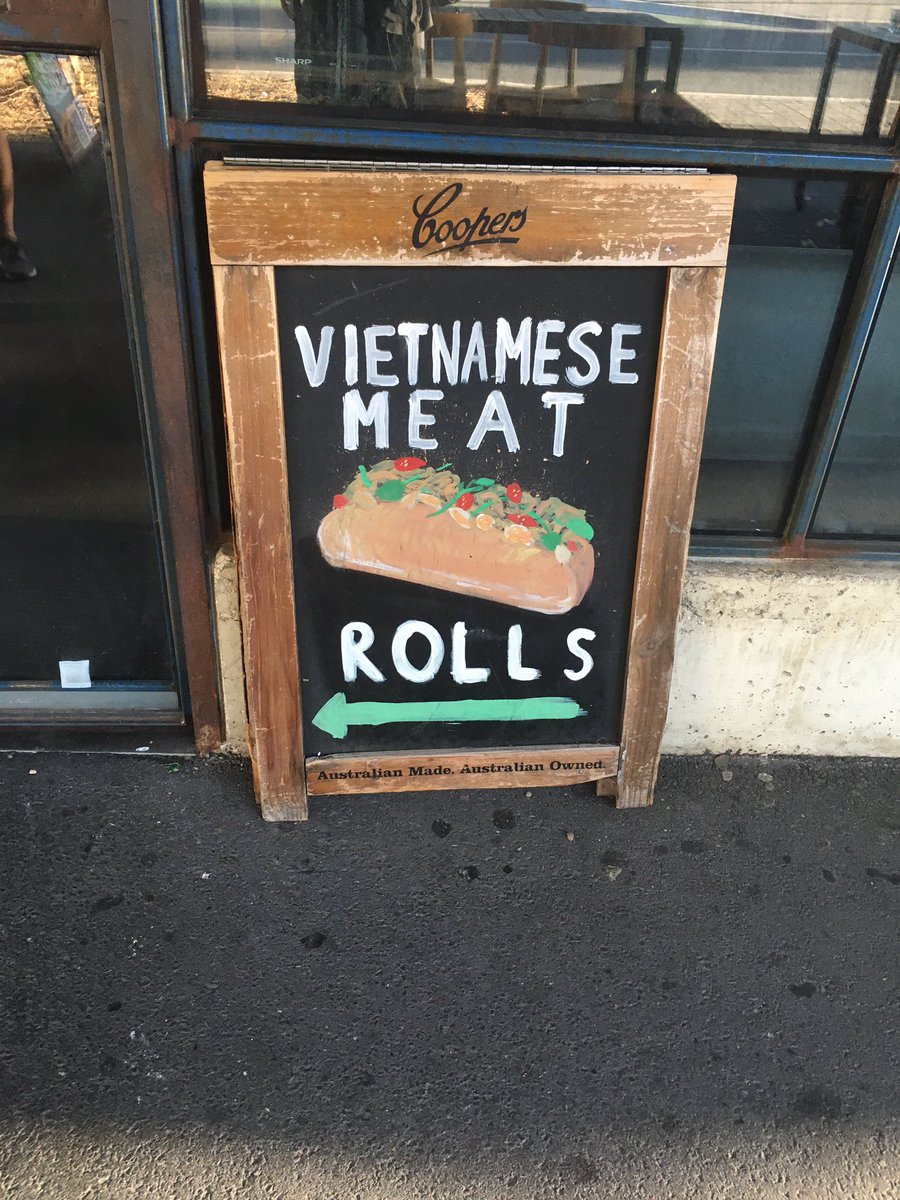 SHARP
Coopers
VIETNAMESE
MEAT
ROLLS
Australian Made. Australian Owned.